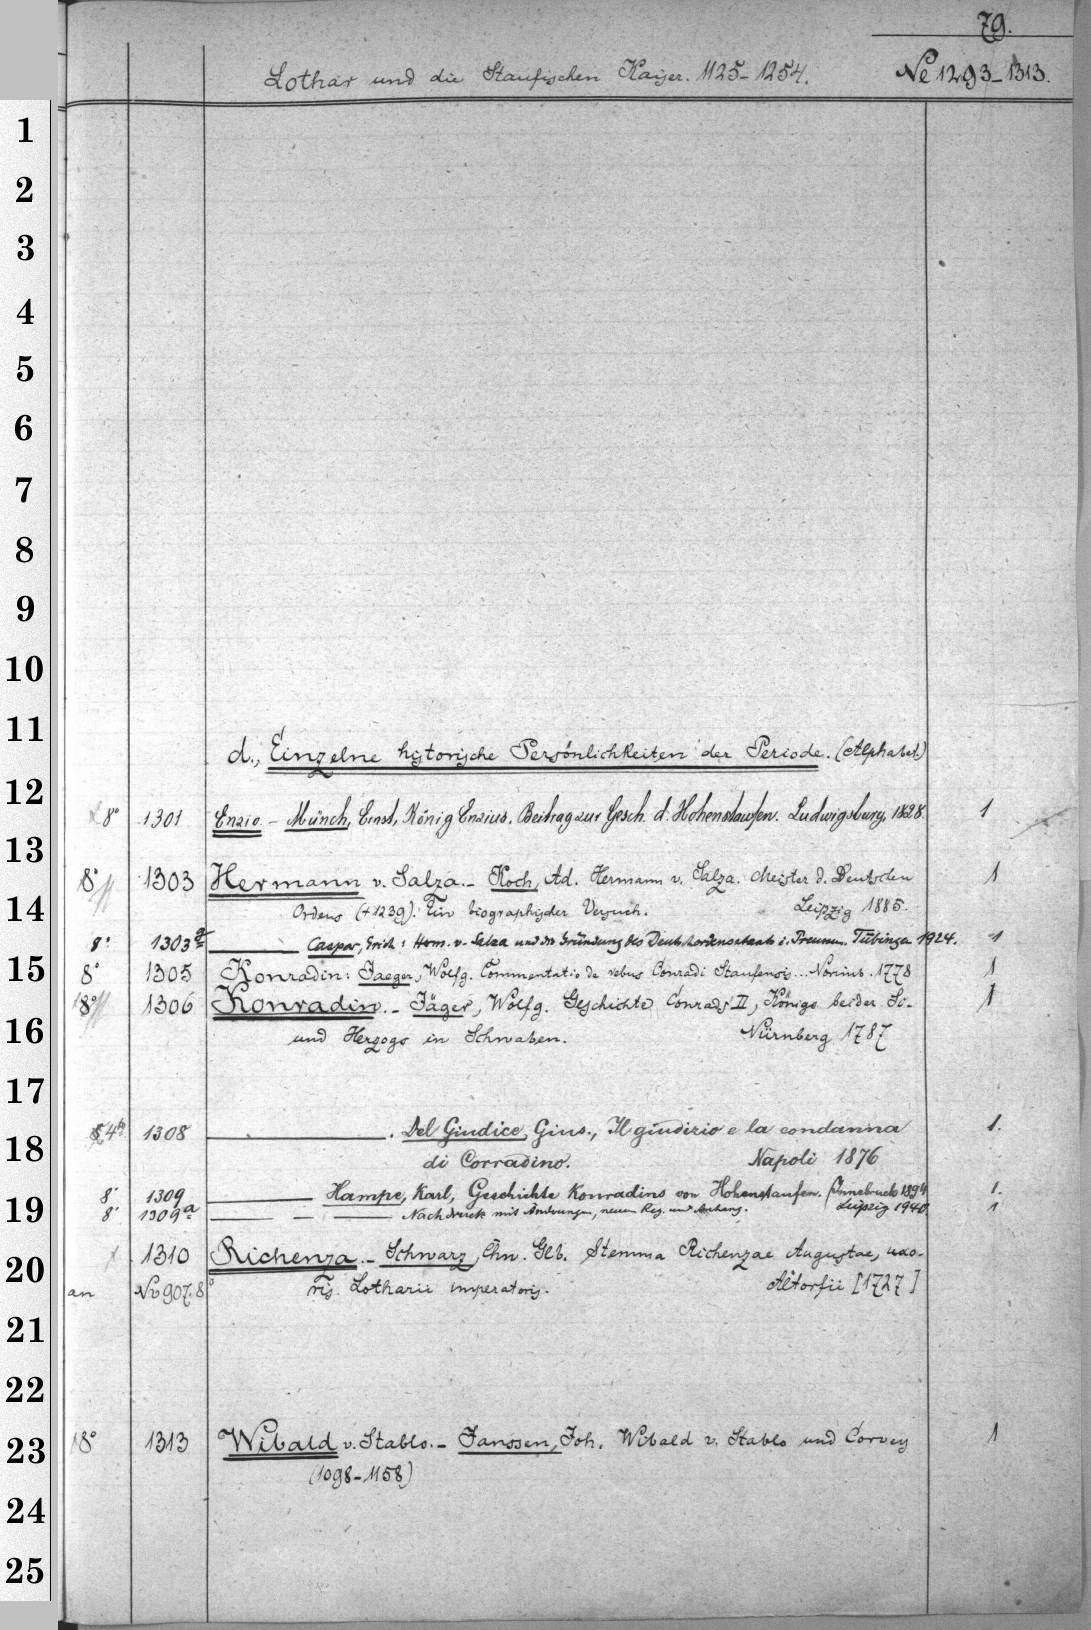 79.
Lothar und die Staufischen Kaiser. 1125-1254. No 1293-1313.
1
2
3
4
5
6
7
8
9
10
11
d., Einzelne historische Persönlichkeiten der Periode. (Alphabet.)
12
8° 1301 Enzio. - Münch, Ernst, König Enzius. Beitrag zur Gesch. d. Hohenstaufen. Ludwigsburg, 1828. 1
13
8° 1303 Hermann v. Salza. - Koch, Ad. Hermann v. Salza. Meister d. Deutschen 1
14
Ordens (+1239). Ein biographischer Versuch. Leipzig 1885.
8° 1303a Caspar, Erich: Herm. v. Salza und die Gründung des Deutschordensstaats i. Preussen. Tübingen 1924. 1
15
8° 1305 Konradin: Jaeger, Wolfg. Commentatio de rebus Conradi Staufensis... Norimb. 1778 1
8° 1306 Konradin. - Jäger, Wolfg. Geschichte Conrads II, Königs beider Si- 1
16
und Herzogs in Schwaben. Nürnberg 1787
17
4° 1308 . Del Giudice, Gius., Il giudizio e la condanna 1.
18
di Corradino. Napoli 1876
8° 1309 Hampe, Karl, Geschichte Konradins von Hohenstaufen. Innsbruck 1894 1.
19
8° 1309a — Nachdruck mit Änderungen, neuem Reg. und Anhang. Leipzig 1940 1
20
1310 Richenza. - Schwarz, Chn. Glb. Stemma Richenzae Augustae, uxo-
an No 907. 8° ris Lotharii imperatoris. Altorfii [1727]
21
22
23
8° 1313 Wibald v. Stablo. - Janssen, Joh. Wibald v. Stablo und Corvey 1
(1098-1158)
24
25